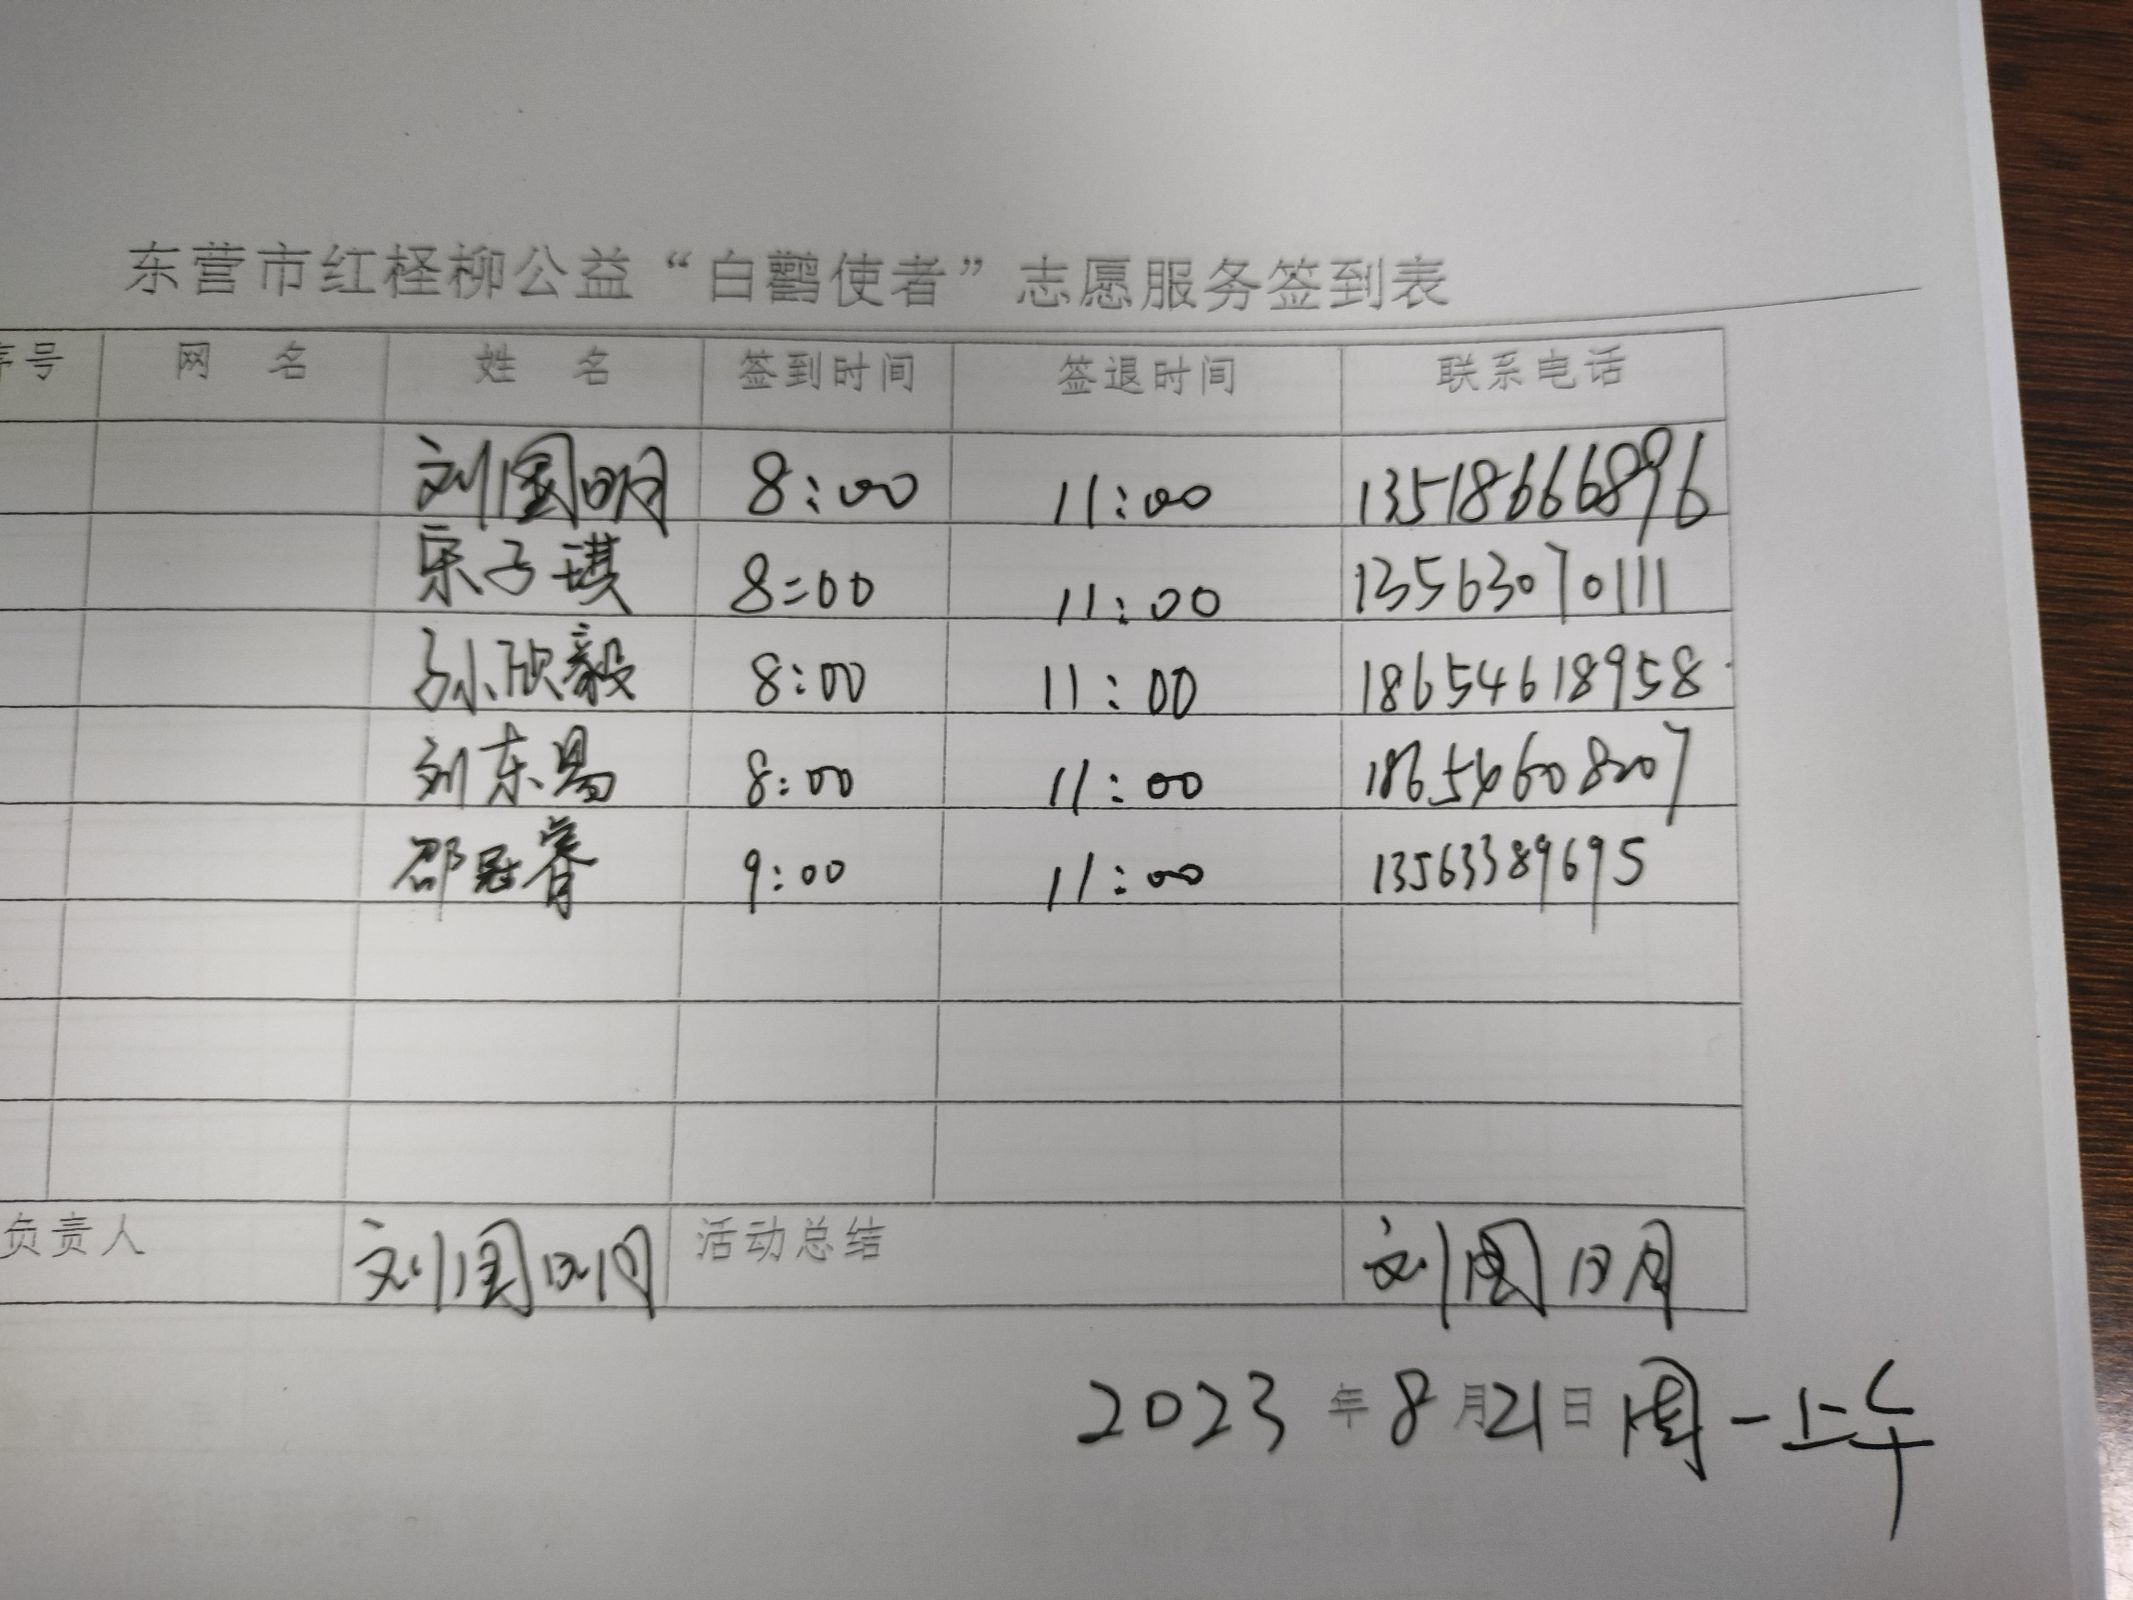 东营市红柽柳公益“白鹳使者”志愿服务签到表
序号 网 名 姓 名 签到时间 签退时间 联系电话
刘国明 8:00 11:00 13518666896
宋子琪 8:00 11:00 13563070111
孙欣毅 8:00 11:00 18654618958
刘东易 8:00 11:00 18654608207
邵冠睿 9:00 11:00 13563389695
负责人 刘国明 活动总结 刘国明
2023 年 8 月 21 日 周一上午